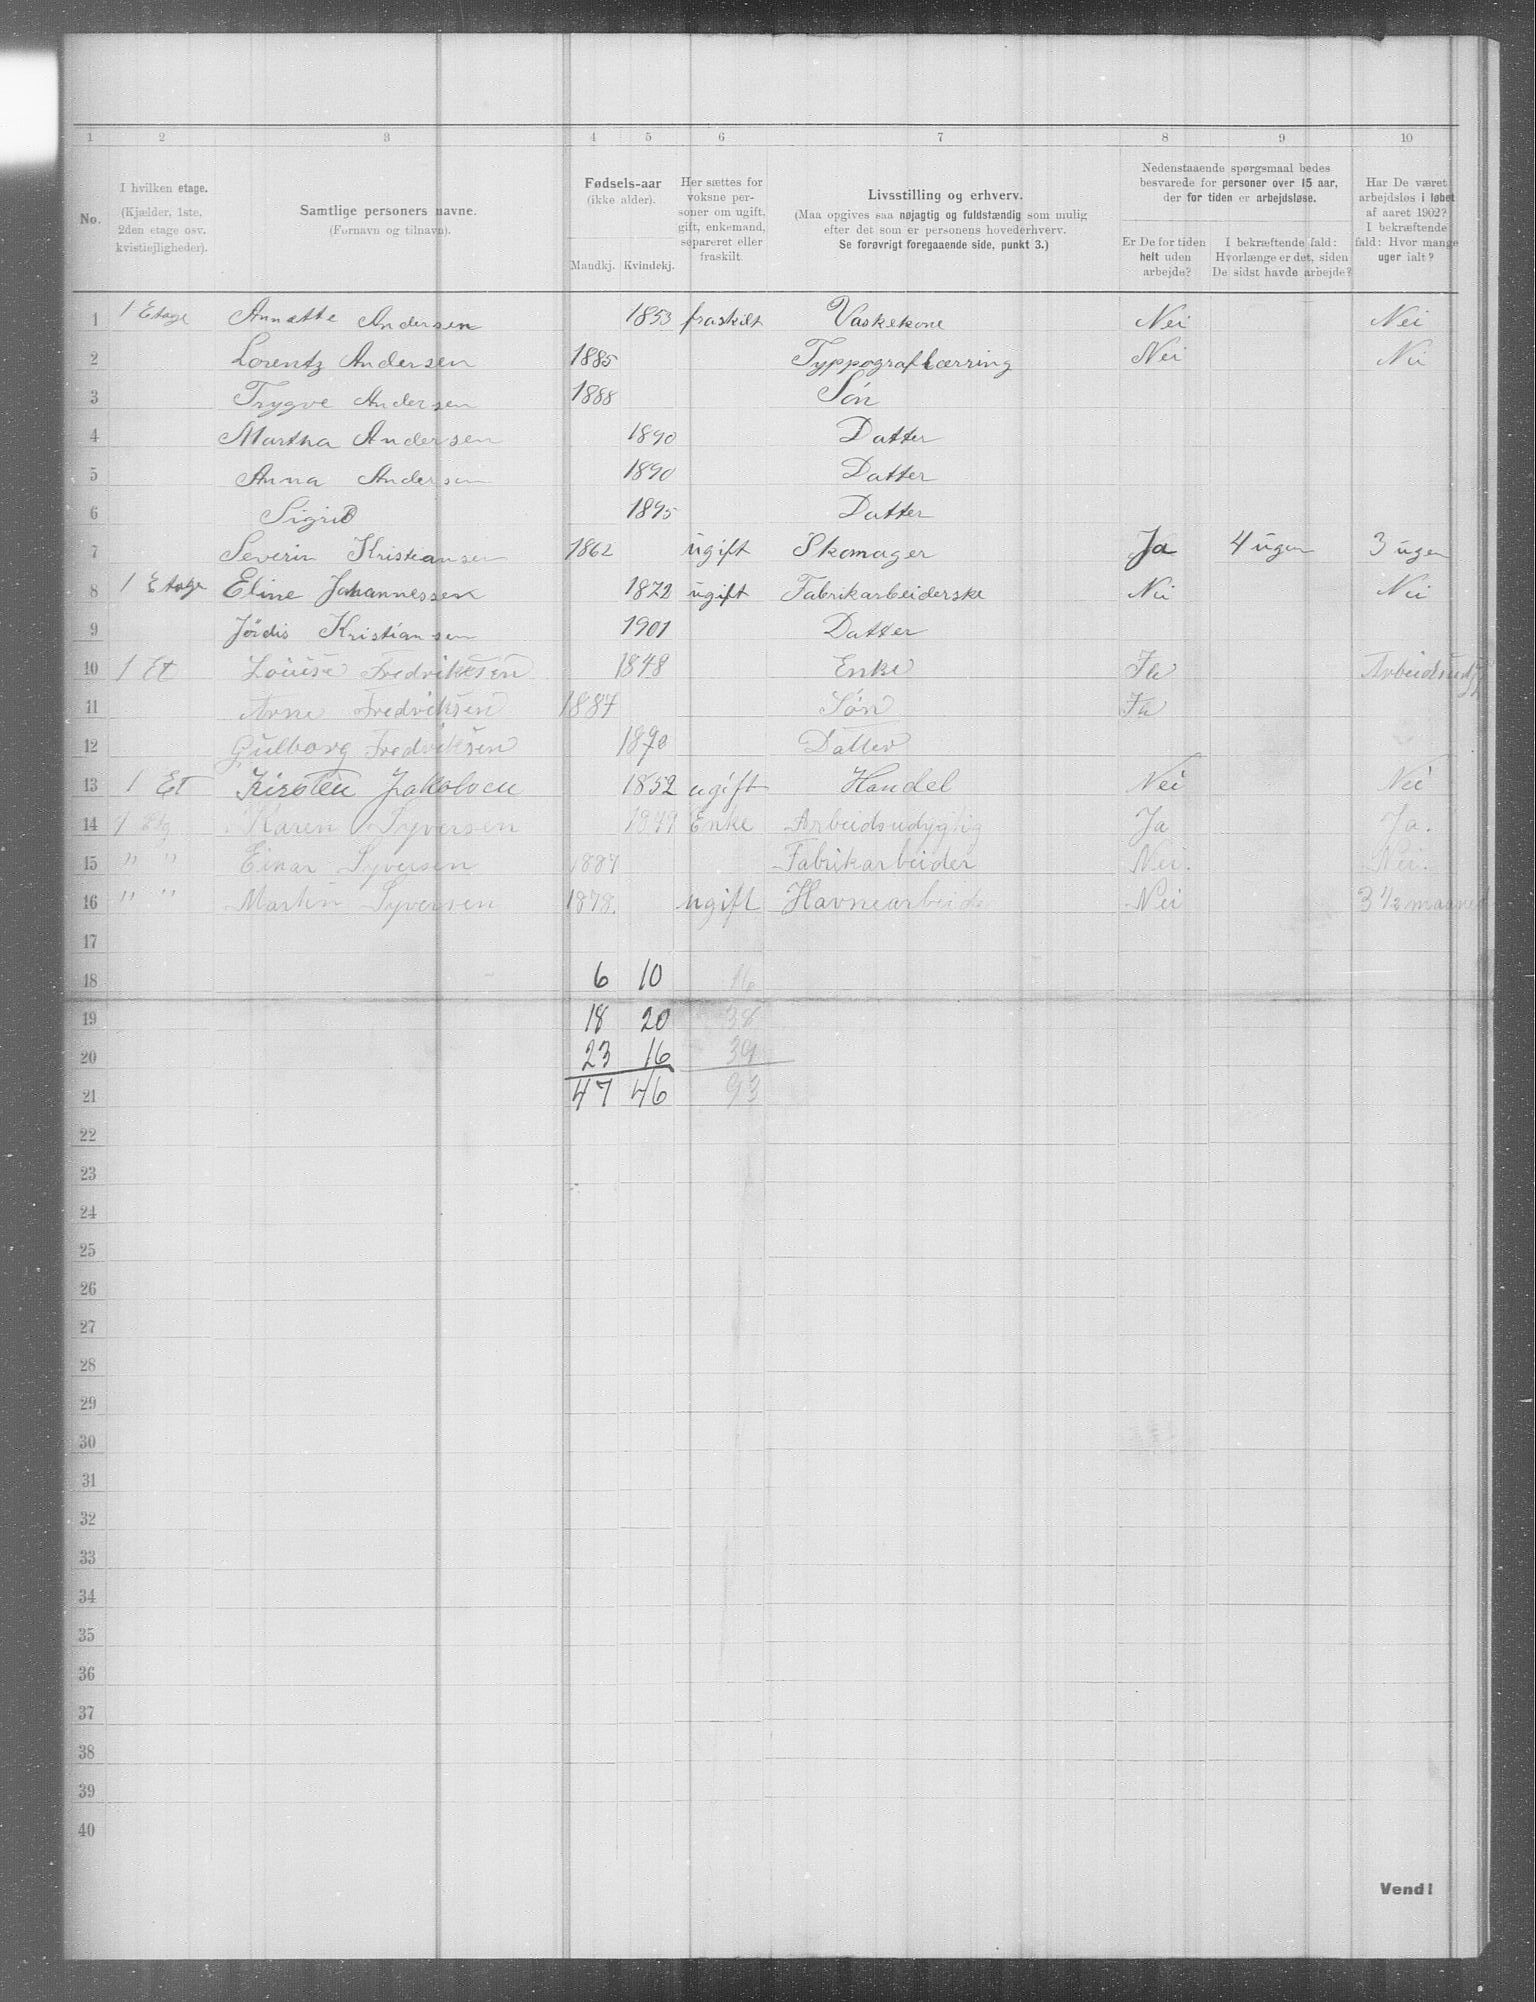 1 2 3 4 5 6 7 8 9 10
No.
I hvilken etage.
(Kjælder, 1ste,
2den etage osv.
kvistlejligheder).
Samtlige personers navne.
(Fornavn og tilnavn).
Fødsels-aar
(ikke alder).
Mandkj. Kvindekj.
Her sættes for
voksne per-
soner om ugift,
gift, enkemand,
separeret eller
fraskilt.
Livsstilling og erhverv.
(Maa opgives saa nøjagtig og fuldstændig som mulig
efter det som er personens hovederhverv.
Se forøvrigt foregaaende side, punkt 3.)
Nedenstaaende spørgsmaal bedes
besvarede for personer over 15 aar,
der for tiden er arbejdsløse.
Er De for tiden
helt uden
arbejde?
I bekræftende fald:
Hvorlænge er det, siden
De sidst havde arbejde?
Har De været
arbejdsløs i løbet
af aaret 1902?
I bekræftende
fald: Hvor mange
uger ialt?
1 1 Etage Annette Andersen 1853 fraskilt Vaskekone Nei Nei
2 Lorentz Andersen 1885 Typpograflærring Nei Nei
3 Trygve Andersen 1888 Søn
4 Martha Andersen 1890 Datter
5 Anna Andersen 1890 Datter
6 Sigrid 1895 Datter
7 Severin Kristiansen 1862 ugift Skomager Ja 4 ugen 3 ugen
8 1 Etage Eline Johannessen 1872 ugift Fabrikarbeiderske Nei Nei
9 Jördis Kristiansen 1901 Datter
10 1 Et Louise Fredriksen 1848 Enke Ja
11 Arne Fredriksen 1887 Søn Ja
12 Gulborg Fredriksen 1890 Datter
13 1 Et Kirsten Jakobsen 1852 ugift Handel Nei Nei
14 1 Etg Karen Syversen 1849 Enke Arbeidsudygtig Ja Ja.
15 " " Einar Syversen 1887 Fabrikarbeider Nei. Nei.
16 " " Martin Syversen 1878. ugift Havnearbeider Nei 3 1/2 maaned
17
18 6 10 16
19 18 20 38
20 23 16 39
21 47 46 93
22
23
24
25
26
27
28
29
30
31
32
33
34
35
36
37
38
39
40
Vend!